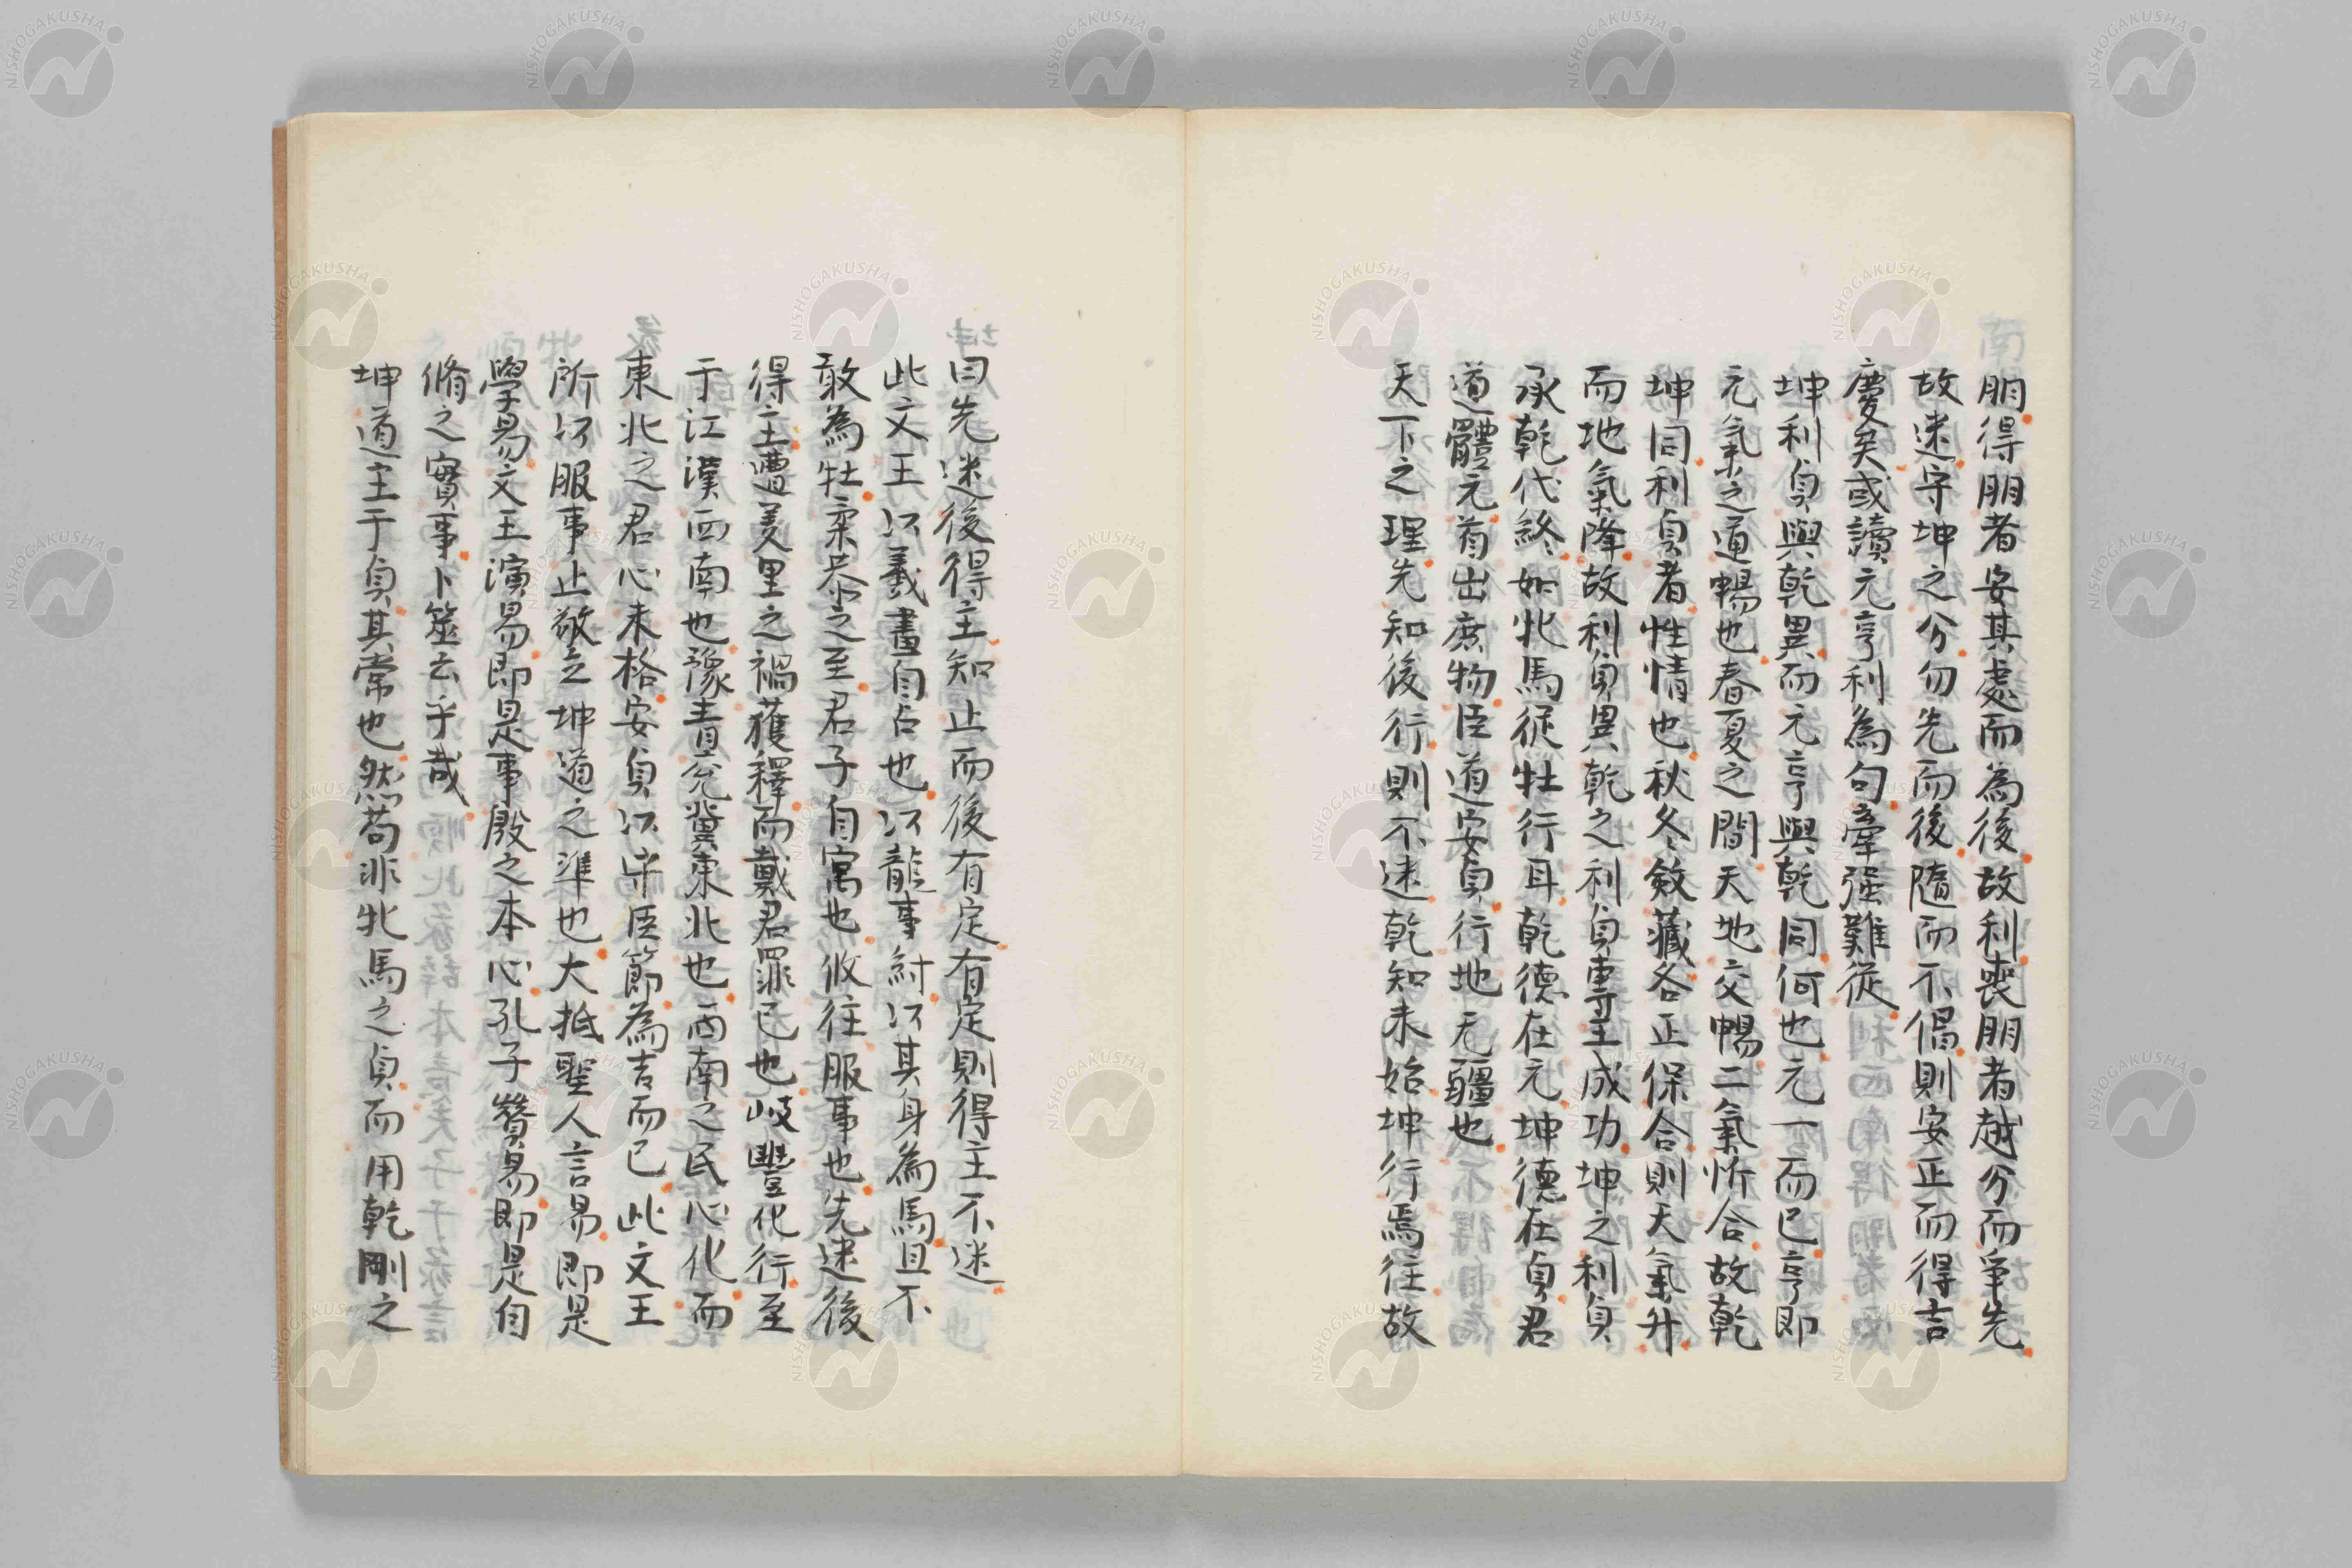 朋得朋者安其處而為後故利喪朋者越分而爭先
故迷守坤之分勿先而後隨而不倡則安正而得吉
慶矣或讀元亨利為句牽强難從
坤利貞與乾異而元亨與乾同何也元一而已亨即
元氣之通暢也春夏之間天地交暢二氣忻合故乾
坤同利貞者性情也秋冬斂藏各正保合則天氣升
而地氣降故利貞異乾之利貞專主成功坤之利貞
承乾代終如牝馬從牡行耳乾德在元坤德在貞君
道體元首出庶物臣道安貞行地无疆也
天下之理先知後行則不迷乾知未始坤行焉往故
曰先迷後得主知止而後有定有定則得主不迷
此文王以羲畫自占也以龍事紂以其身為馬且不
敢為牡柔恭之至君子自寓也攸往服事也先迷後
得主遭羑里之禍獲釋而戴君罪己也岐豐化行至
于江漢西南也豫青兗冀東北也西南之民心化而
東北之君心未格安貞以守臣節為吉而已此文王
所以服事止敬立坤道之準也大抵聖人言易即是
學易文王演易即是事殷之本心孔子贊易即是自
脩之實事卜筮云乎哉
坤道主于貞其常也然苟非牝馬之貞而用乾剛之
NISHOGAKUSHA